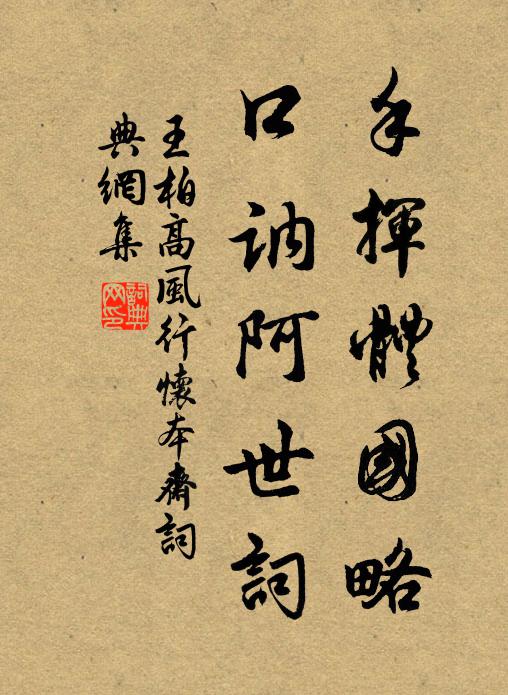 手揮體國略
口訥阿世詞
王柏高風行懷本齋詞
典網集
詞典網印